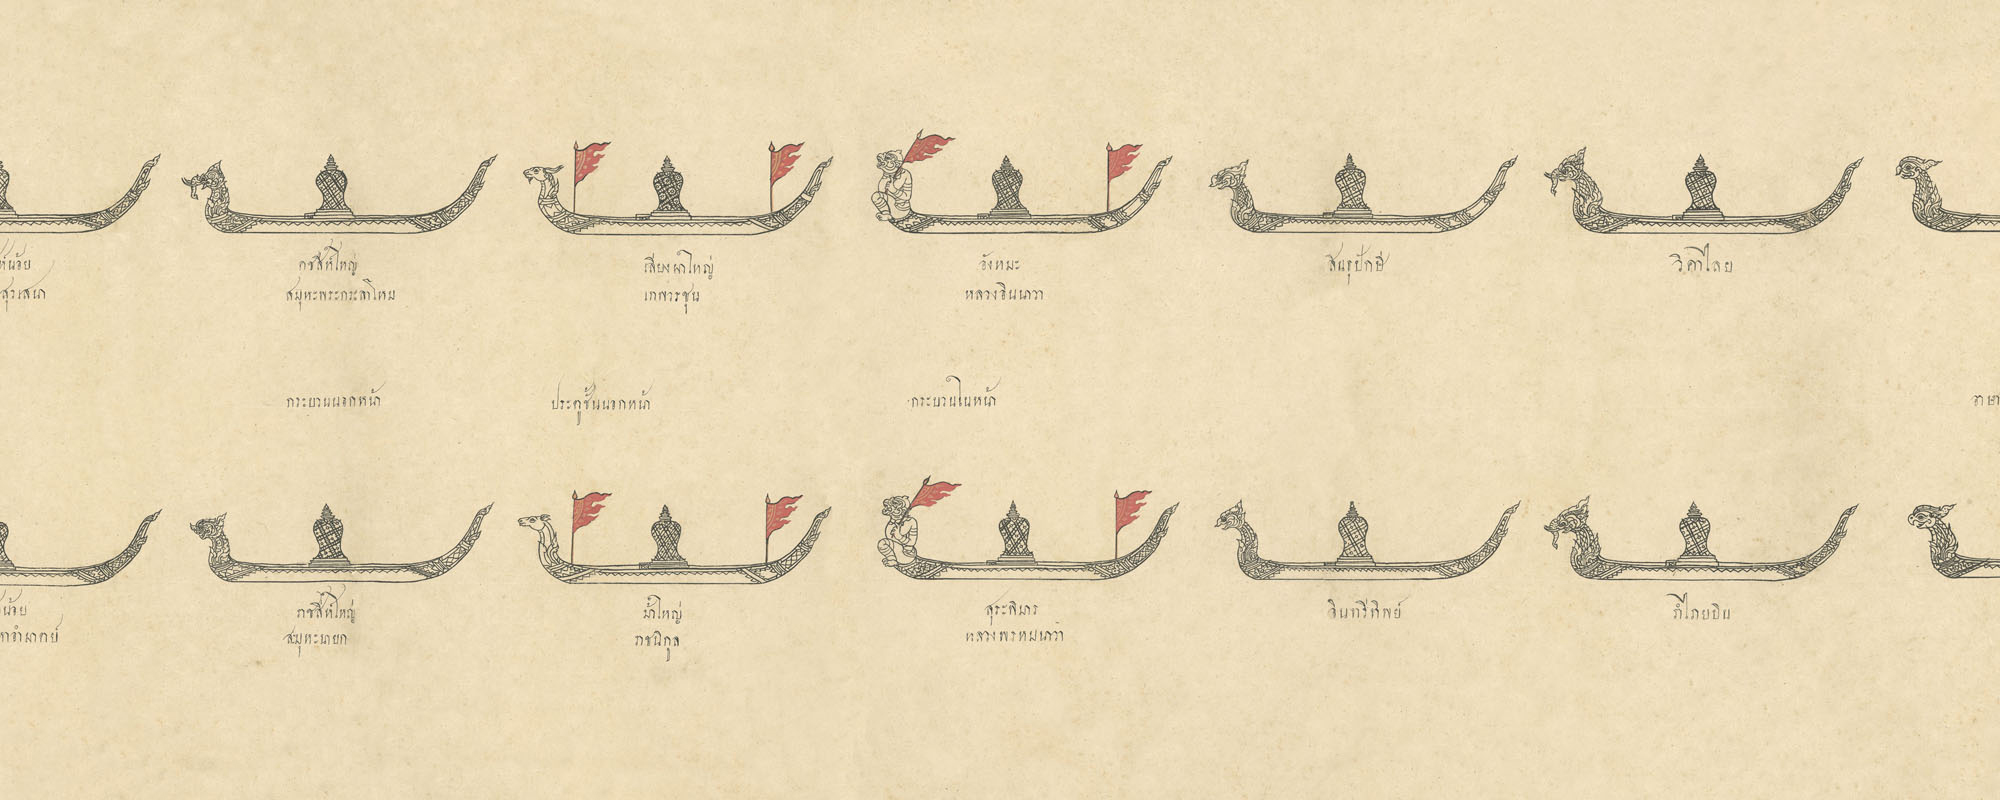 ห์น้อย
สุรเสนา
คชสีห์ใหญ่
สมุหะพระกระลาโหม
เลียงผาใหญ่
เทพวรชุน
วังหมะ
หลวงอินเทวา
สินธุปักษี
วิดาไลย
กระบวนนอกหน้า
ประตูชั้นนอกหน้า
กระบวนในหน้า
น้อย
ราชสีห์ใหญ่
สมุหะนายก
ม้าใหญ่
ราชนิกูล
สุระพินาร
หลวงพรหมเทวา
อินทรีทิพย์